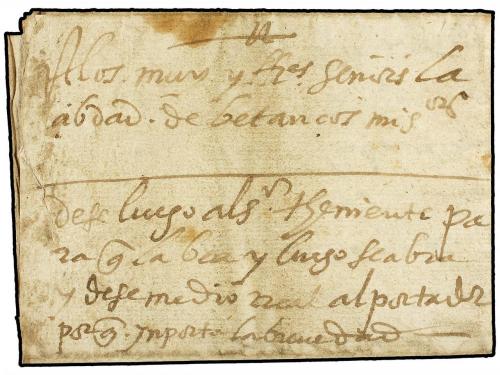 A los muy yllres señores la
çibdad de betanços mis sres
dese luego al sr theniente pa
ra q la bea y luego se abra
y dese medio real al portador
por q ynporta la breuedad